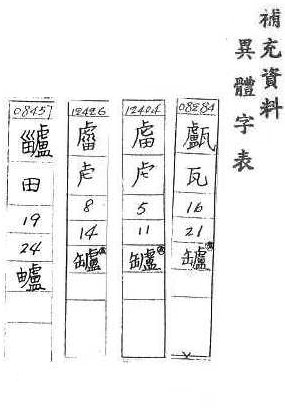 補充資料
異體字表
08284
瓦
16
21
罏
12404
虍
5
11
罏
12426
虍
8
14
罏
08457
田
19
24